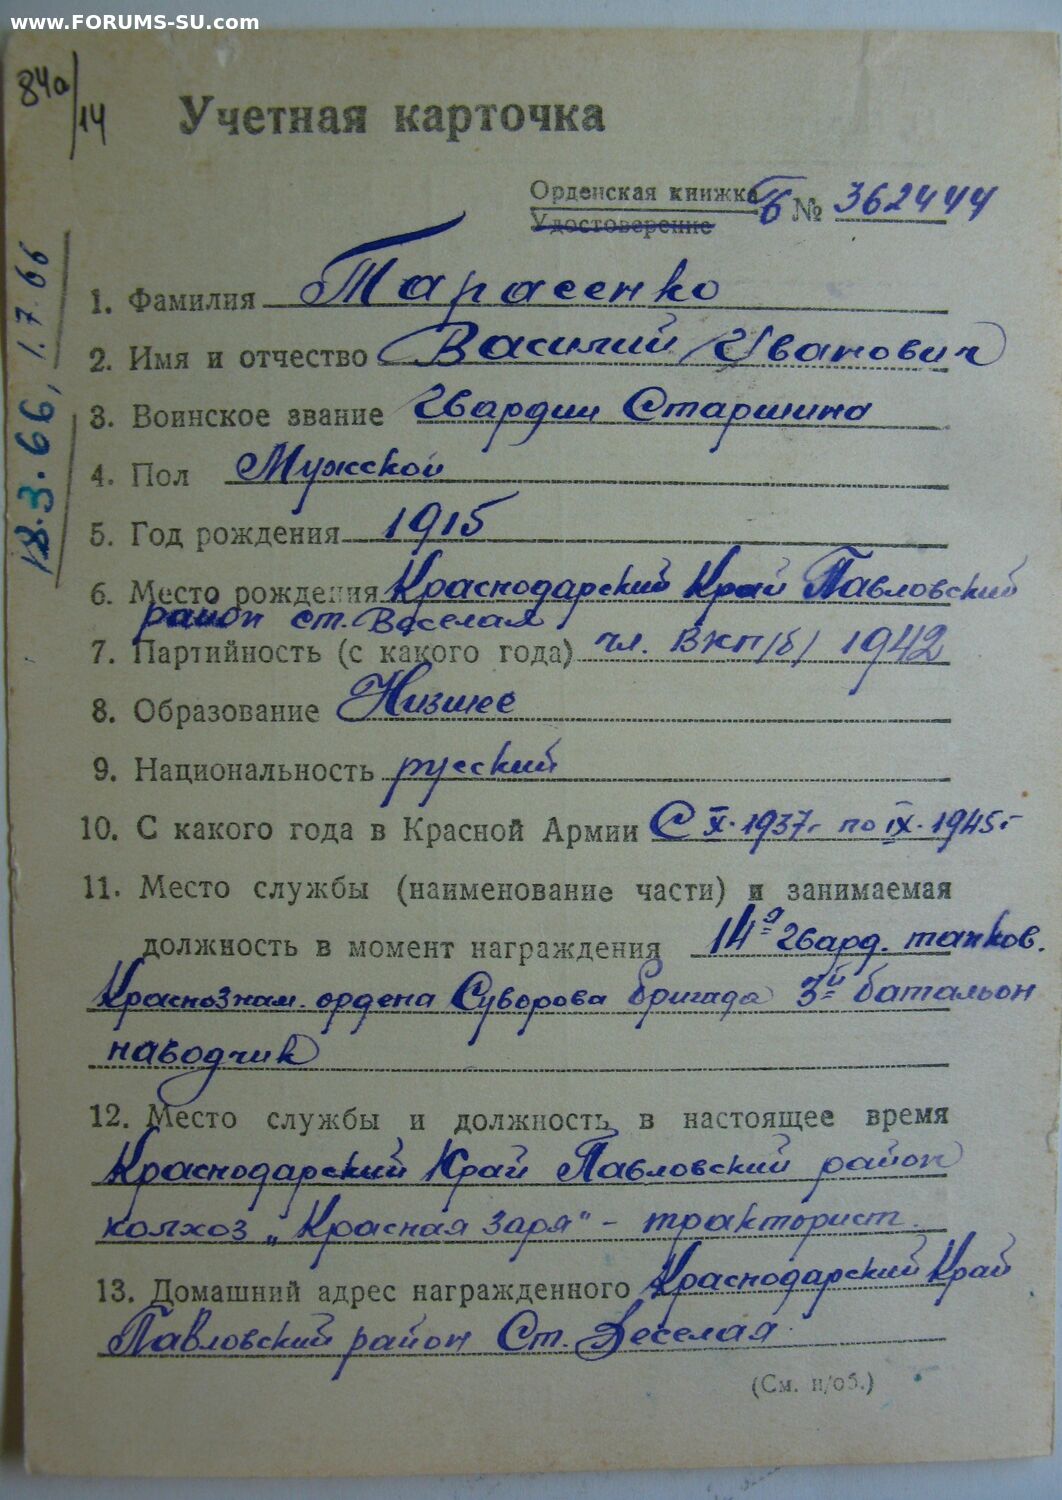 www.FORUMS-SU.com
84а/14
Учетная карточка
Орденская книжка Б № 362444
Удостоверение
18.3.66, 1.7.66
1. Фамилия Тарасенко
2. Имя и отчество Василий Иванович
3. Воинское звание Гвардии Старшина
4. Пол Мужской
5. Год рождения 1915
6. Место рождения Краснодарский Край Павловский
район ст. Веселая
7. Партийность (с какого года) чл. ВКП/б/ 1942
8. Образование Низшее
9. Национальность русский
10. С какого года в Красной Армии С X-1937г по IX-1945г
11. Место службы (наименование части) и занимаемая
должность в момент награждения 14я гвард. танков.
Краснознам. ордена Суворова бригада 3й батальон
наводчик
12. Место службы и должность в настоящее время
Краснодарский Край Павловский район
колхоз „Красная Заря" - тракторист.
13. Домашний адрес награжденного Краснодарский Край
Павловский район Ст. Веселая
(См. н/об.)